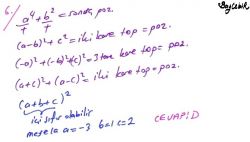 Bay Çebik
6./ a⁴ + b² = sonuç poz.
+ +
(a-b)² + c² = iki kare top = poz.
(-a)² + (-b)² + (c)² = 3 tane kare top = poz.
(a+c)² + (a-c)² = iki kare top = poz.
(a+b+c)²
içi sıfır olabilir
mesela a=-3 b=1 c=2
CEVAP: D